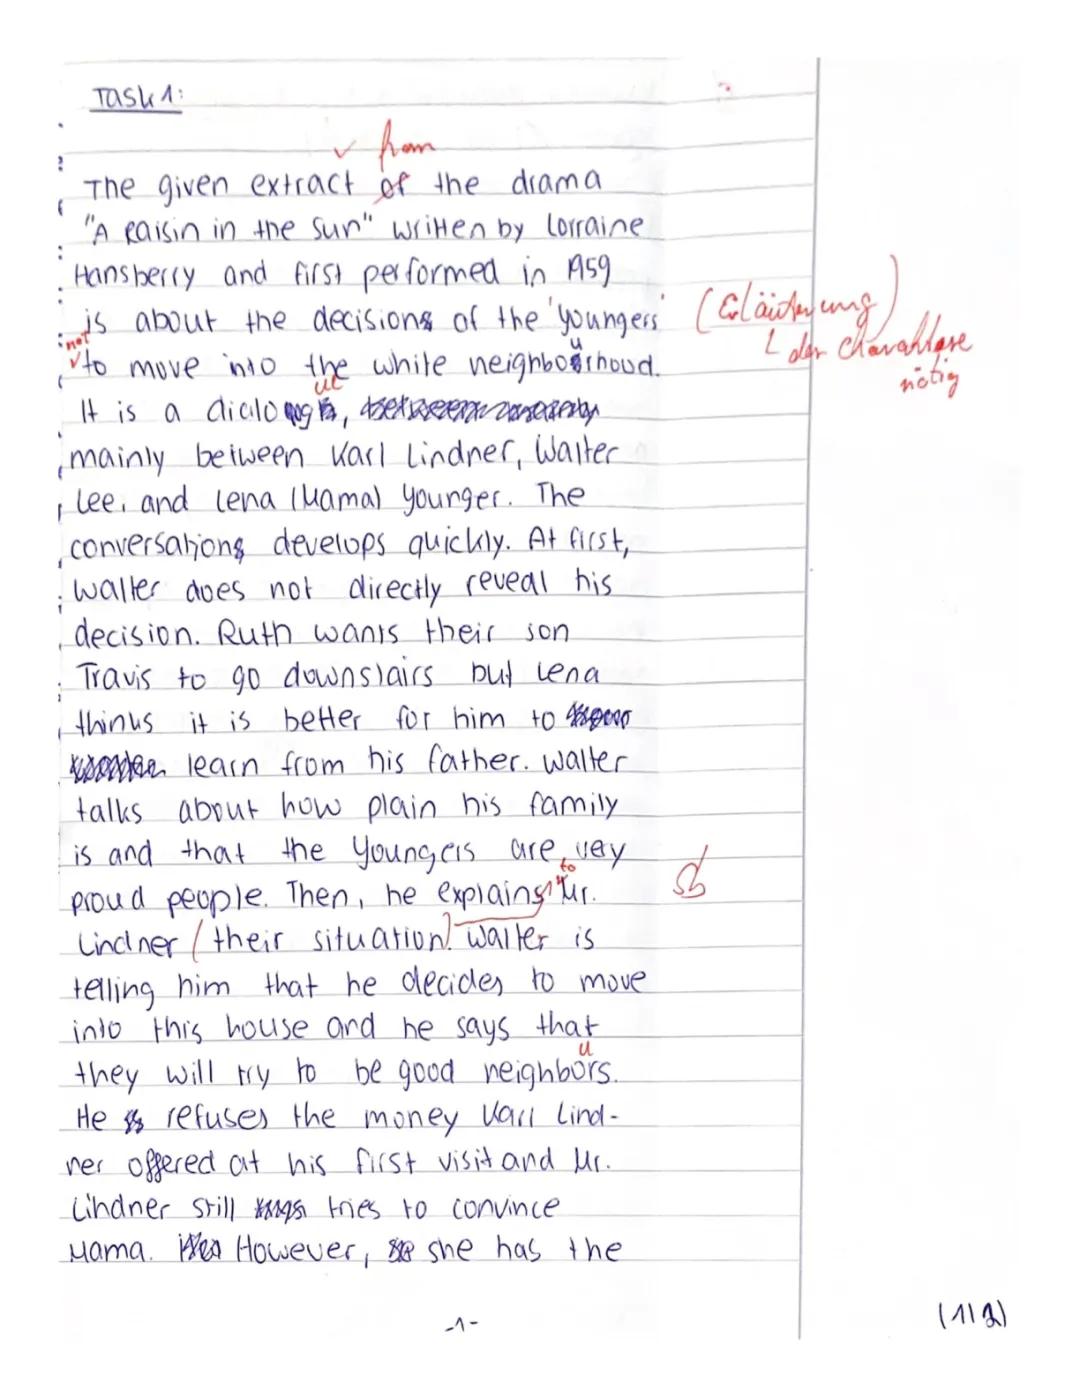 Task 1:
✓ from
The given extract of the drama
"A Raisin in the Sun" written by Lorraine
Hansberry and first performed in 1959
is about the decisions of the 'Youngers' (Erläuterung)
not
✓ to move into the white neighborhood. der Charaktere
u
nötig
It is a dialo
ue
mainly between Karl Lindner, Walter
Lee, and Lena (Mama) Younger. The
conversations develops quickly. At first,
Walter does not directly reveal his
decision. Ruth wants their son
Travis to go downstairs but Lena
thinks it is better for him to
learn from his father. Walter
talks about how plain his family
is and that the Youngers are very
to
proud people. Then, he explains Mr. sb
Lindner (their situation). Walter is
telling him that he decides to move
into this house and he says that
u
they will try to be good neighbors.
He refuses the money Karl Lind-
ner offered at his first visit and Mr.
Lindner still tries to convince
Mama. However, she has the
-1-
(1|2)